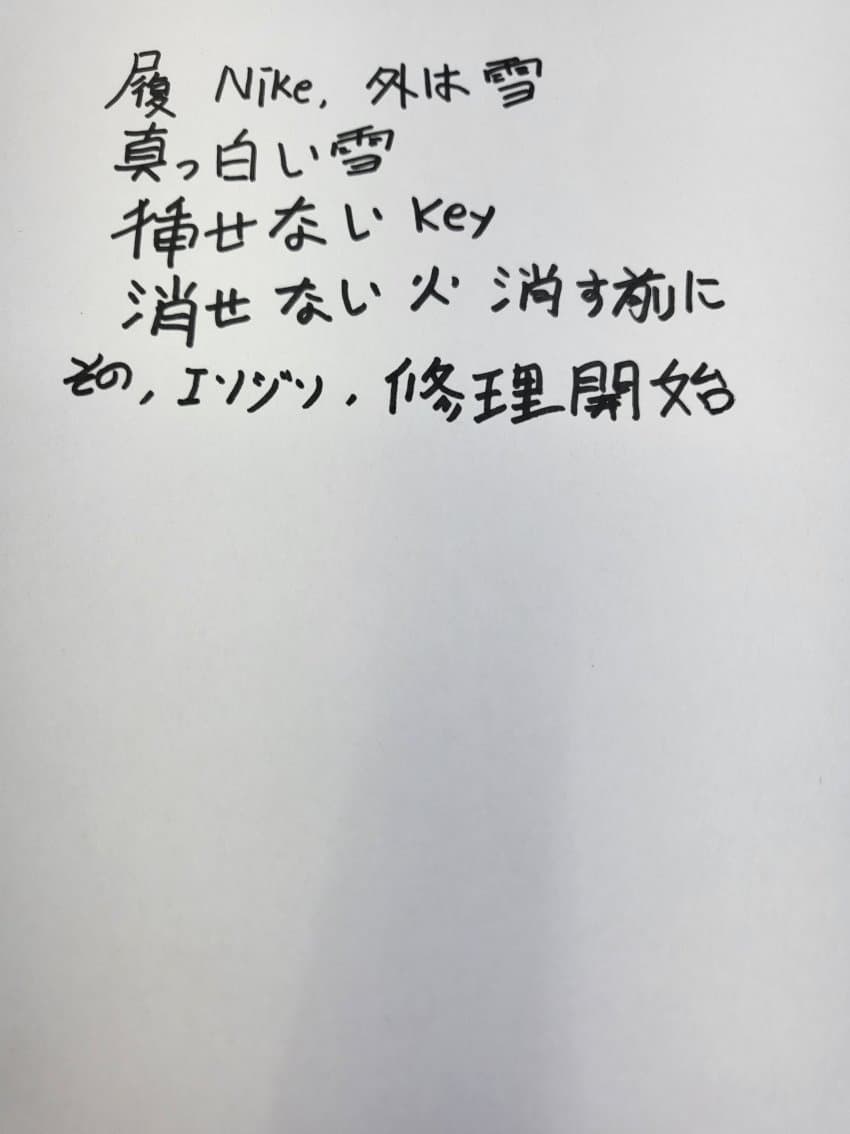 履 Nike, 外は雪
真っ白い雪
挿せない key
消せない火 消す前に
その, エソジソ, 修理開始